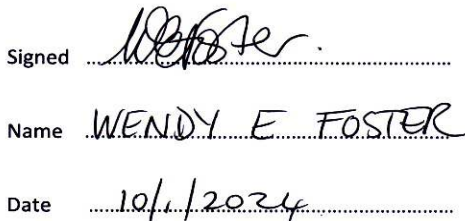 Signed WEFoster.
Name WENDY E FOSTER
Date 10/1/2024